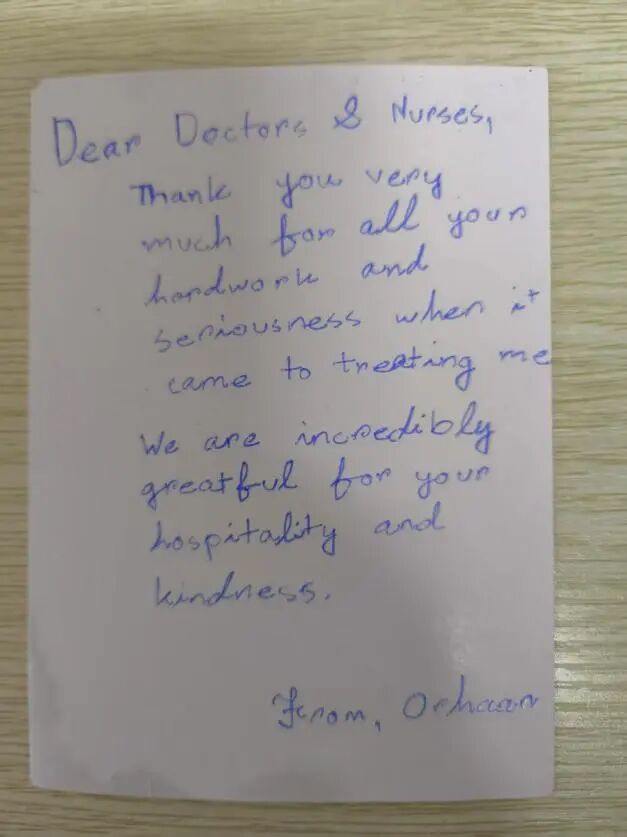 Dear Doctors & Nurses,
Thank you very
much for all your
hardwork and
seriousness when it
came to treating me
We are incredibly
greatful for your
hospitality and
kindness.
From, Orhaan